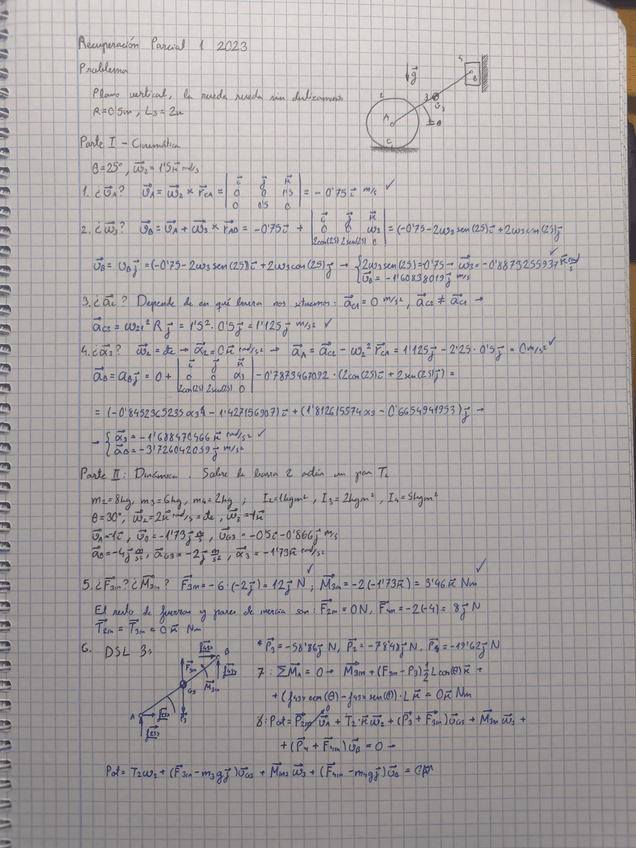 Recuperación Parcial 1 2023
Problema
Plano vertical, la rueda rueda sin deslizamiento
R=0'5m, L₃=2m
Parte I - Cinemática
θ=25º, ω⃗₂=1'5k⃗ rad/s
1. ¿v⃗A? v⃗A = ω⃗₂ × r⃗CA = | i⃗ j⃗ k⃗ ; 0 0 1'5 ; 0 0'5 0 | = -0'75i⃗ m/s ✓
2. ¿ω⃗₃? v⃗B = v⃗A + ω⃗₃ × r⃗AB = -0'75i⃗ + | i⃗ j⃗ k⃗ ; 0 0 ω₃ ; 2cos(25) 2sen(25) 0 | = (-0'75-2ω₃sen(25))i⃗+2ω₃cos(25)j⃗
v⃗B = vB j⃗ = (-0'75-2ω₃sen(25))i⃗+2ω₃cos(25)j⃗ → { 2ω₃sen(25)=0'75 → ω⃗₃=-0'8873255937k⃗ rad/s ✓
v⃗B = -1'60838019j⃗ m/s
3. ¿a⃗C? Depende de en qué barra nos situemos: a⃗C1 = 0 m/s², a⃗C2 ≠ a⃗C1 →
a⃗C2 = ω₂₁² R j⃗ = 1'5²·0'5j⃗ = 1'125j⃗ m/s² ✓
4. ¿α⃗₃? ω⃗₂ = cte → α⃗₂=0k⃗ rad/s² → a⃗A = a⃗C2 - ω₂² r⃗CA = 1'125j⃗ - 2'25·0'5j⃗ = 0m/s² ✓
a⃗B = aB j⃗ = 0 + | i⃗ j⃗ k⃗ ; 0 0 α₃ ; 2cos(25) 2sen(25) 0 | - 0'7873467092·(2cos(25)i⃗ + 2sen(25)j⃗) =
= (-0'8452365235α₃ - 1'427156907)i⃗ + (1'812615574α₃ - 0'6654941953)j⃗ →
→ { α⃗₃ = -1'688470466k⃗ rad/s² ✓
a⃗B = -3'726042039j⃗ m/s²
Parte II: Dinámica. Sobre la barra 2 actúa un par T₂
m₂=8kg, m₃=6kg, m₄=2kg ; I₂=1kgm², I₃=2kgm², I₄=5kgm²
θ=30º, ω⃗₂=2k⃗ rad/s=cte, ω⃗₃=1k⃗
v⃗A=-1i⃗, v⃗B=-1'73j⃗ m/s, v⃗G3=-0'5i⃗-0'866j⃗ m/s
a⃗B=-4j⃗ m/s², a⃗G3=-2j⃗ m/s², α⃗₃=-1'73k⃗ rad/s²
5. ¿F⃗3in? ¿M⃗3in? F⃗3in = -6·(-2j⃗) = 12j⃗ N ; M⃗3in = -2(-1'73k⃗) = 3'46k⃗ Nm
El resto de fuerzas y pares de inercia son: F⃗2in = 0N, F⃗4in = -2(-4) = 8j⃗ N
T⃗2in = T⃗3in = 0k⃗ Nm
6. DSL 3:
* P⃗₃ = -58'86j⃗ N, P⃗₂ = -78'48j⃗ N, P⃗₄ = -19'62j⃗ N
7: ΣM⃗A = 0 → M⃗3in + (F3in - P₃)½L cos(θ)k⃗ +
+ (f43y cos(θ) - f43x sen(θ))·L k⃗ = 0k⃗ Nm
8: Pot = P⃗2in v⃗A + T₂·k⃗ ω⃗₂ + (P⃗₃ + F⃗3in)v⃗G3 + M⃗3in ω⃗₃ +
+ (P⃗₄ + F⃗4in)v⃗B = 0 →
Pot = T₂ω₂ + (F⃗3in - m₃gj⃗)v⃗G3 + M⃗in3 ω⃗₃ + (F⃗4in - m₄gj⃗)v⃗B =